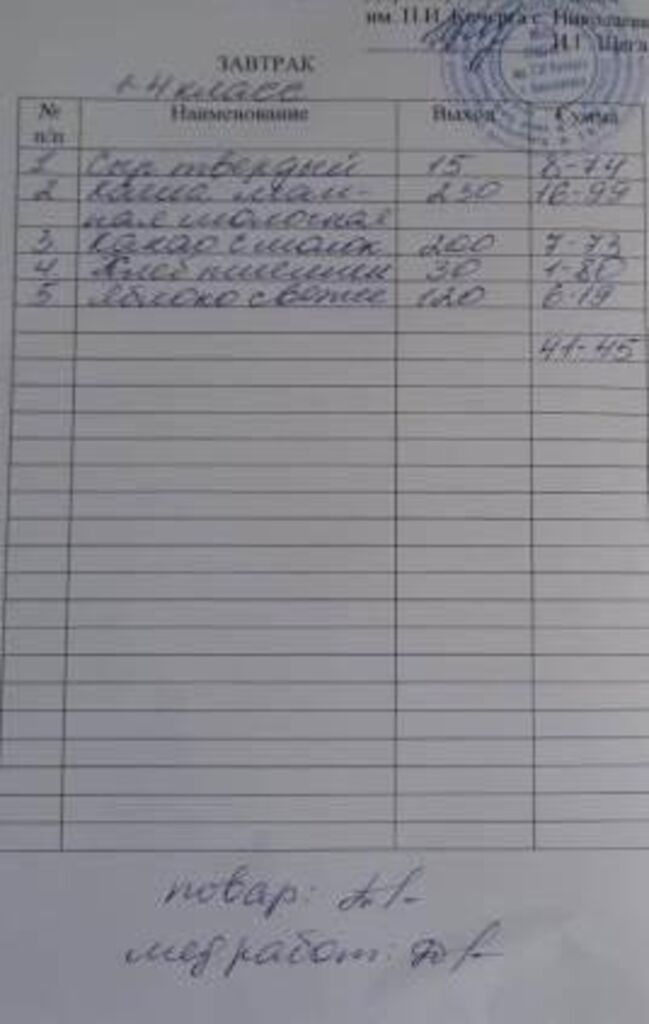 им. П.И. Кочерга с. Николаевк
И.Г. Щега
ЗАВТРАК
1-4 класс
№ п/п Наименование Выход Сумма
1 Сыр твердый 15 8-74
2 каша ман- 230 16-99
ная молочная
3 Какао с молок 200 7-73
4 Хлеб пшеничн 30 1-80
5 Яблоко свежее 120 6-19
41-45
повар:
мед работ: